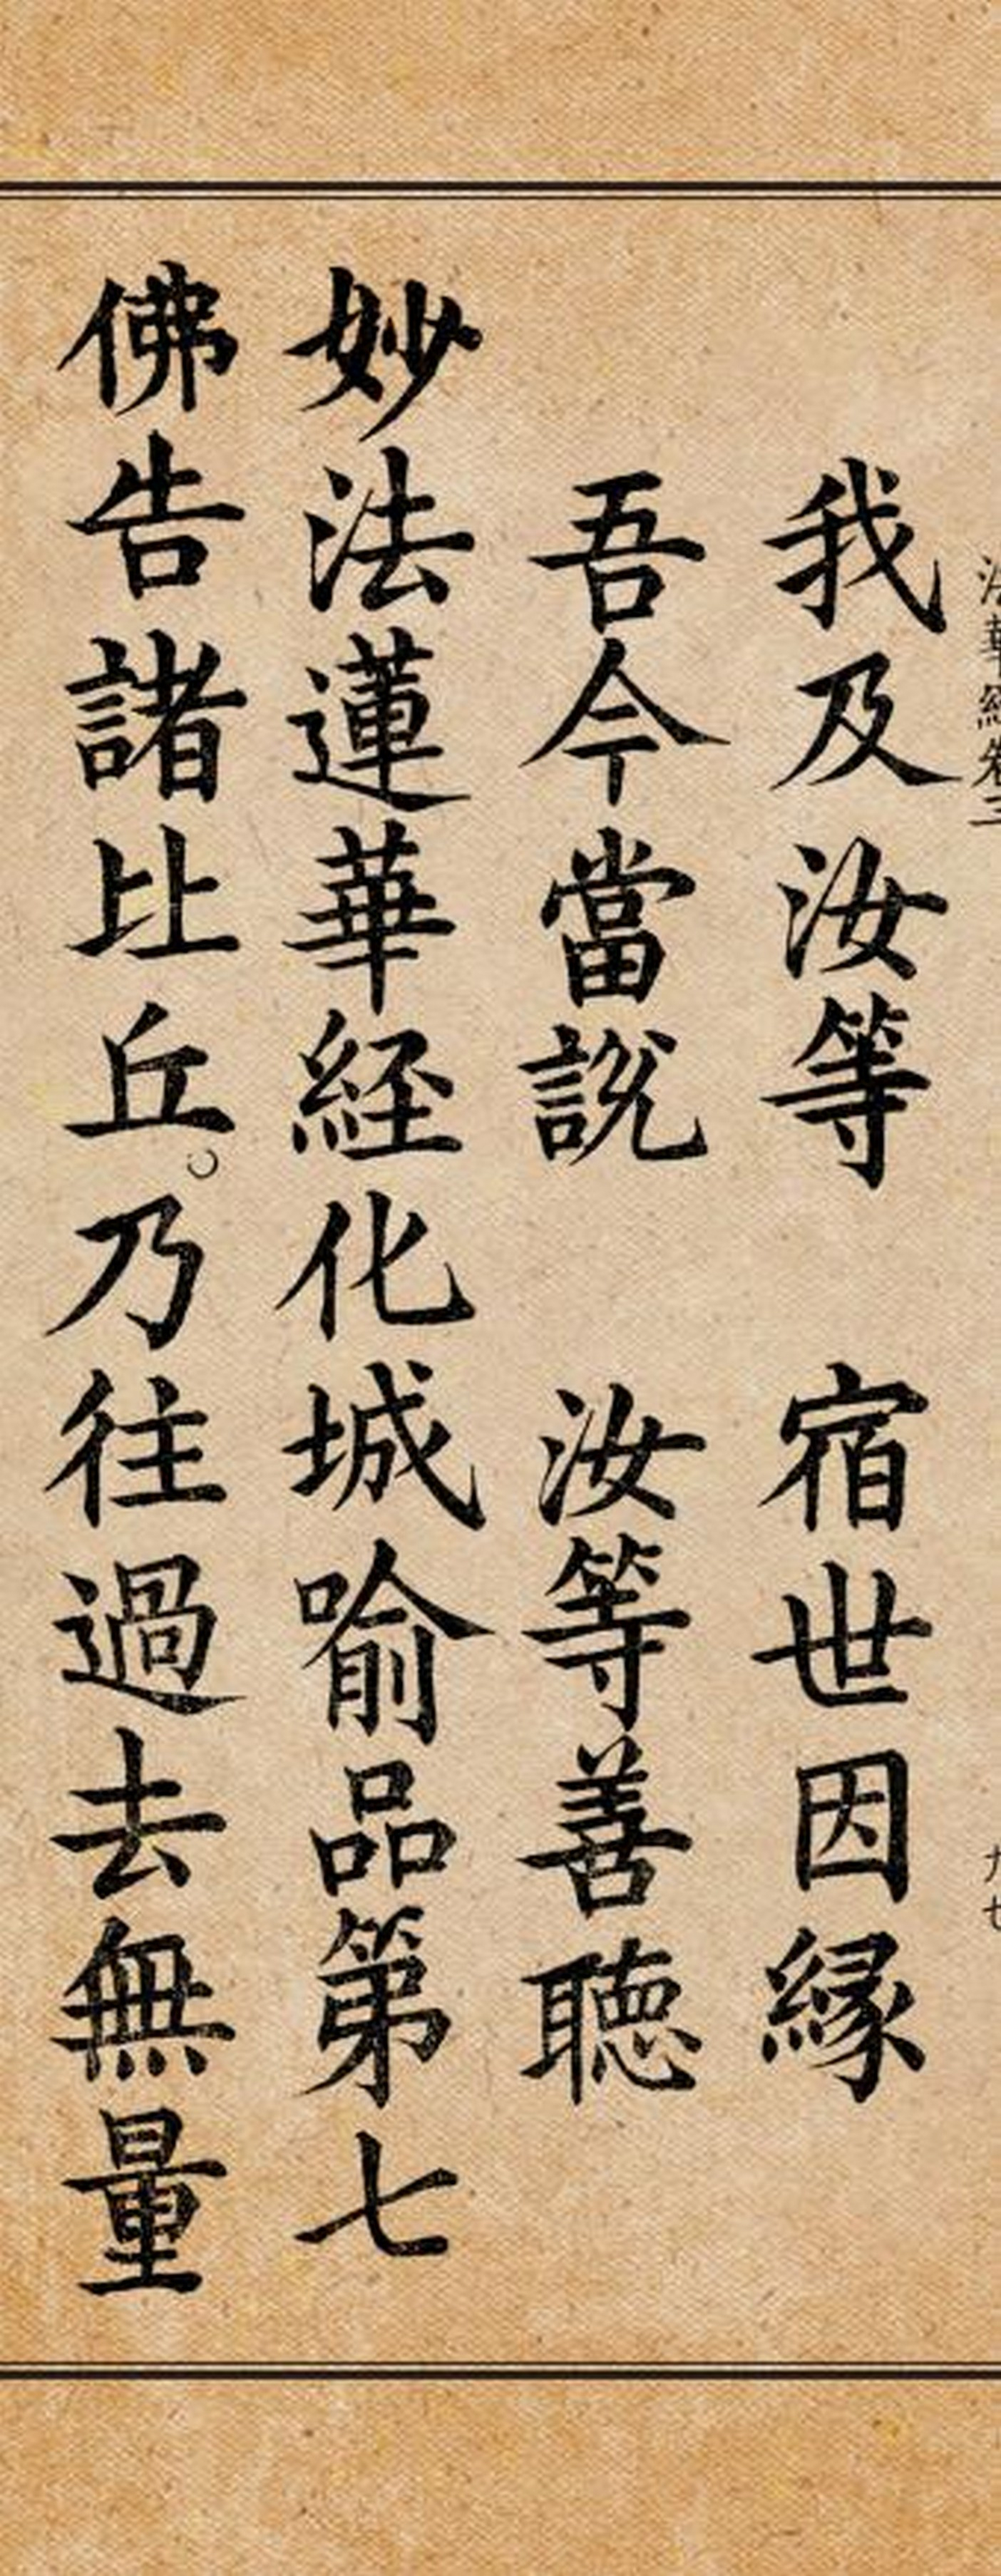 法華経巻三 九七
我及汝等 宿世因縁
吾今當説 汝等善聴
妙法蓮華経化城喻品第七
佛告諸比丘。乃往過去無量